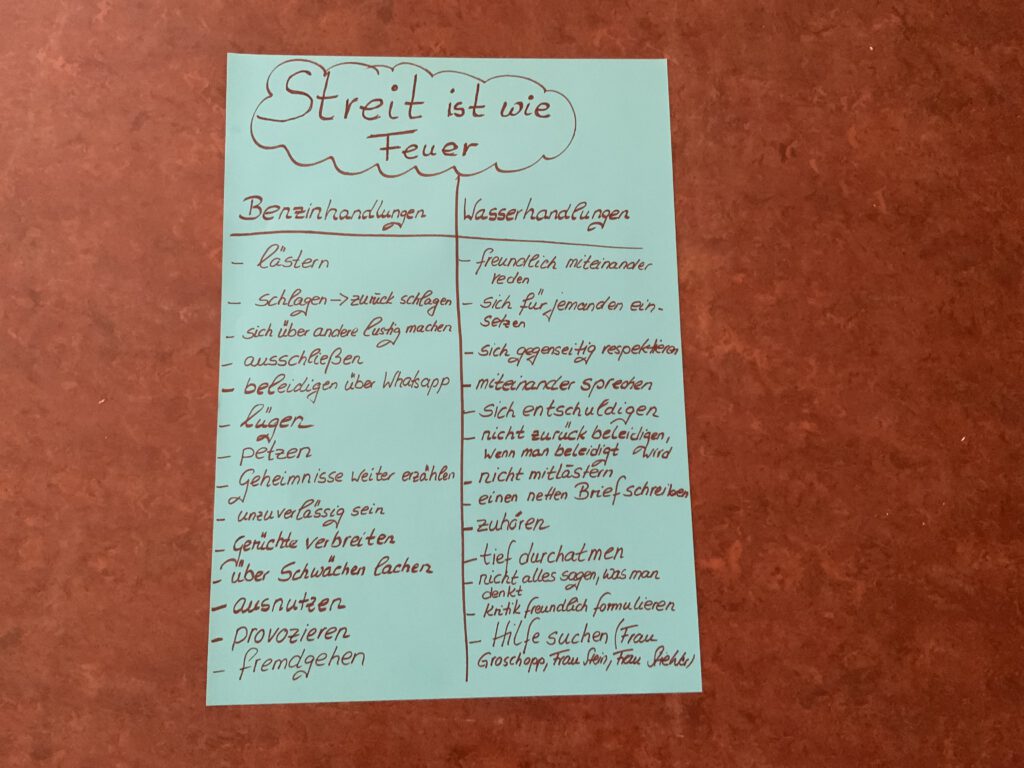 Streit ist wie
Feuer
Benzinhandlungen
- lästern
- schlagen -> zurück schlagen
- sich über andere lustig machen
- ausschließen
- beleidigen über Whatsapp
- lügen
- petzen
- Geheimnisse weiter erzählen
- unzuverlässig sein
- Gerüchte verbreiten
- über Schwächen lachen
- ausnutzen
- provozieren
- fremdgehen
Wasserhandlungen
- freundlich miteinander
reden
- sich für jemanden ein-
setzen
- sich gegenseitig respektieren
- miteinander sprechen
- sich entschuldigen
- nicht zurück beleidigen,
wenn man beleidigt wird
- nicht mitlästern
- einen netten Brief schreiben
- zuhören
- tief durchatmen
- nicht alles sagen, was man
denkt
- kritik freundlich formulieren
- Hilfe suchen (Frau
Groschopp, Frau Stein, Frau